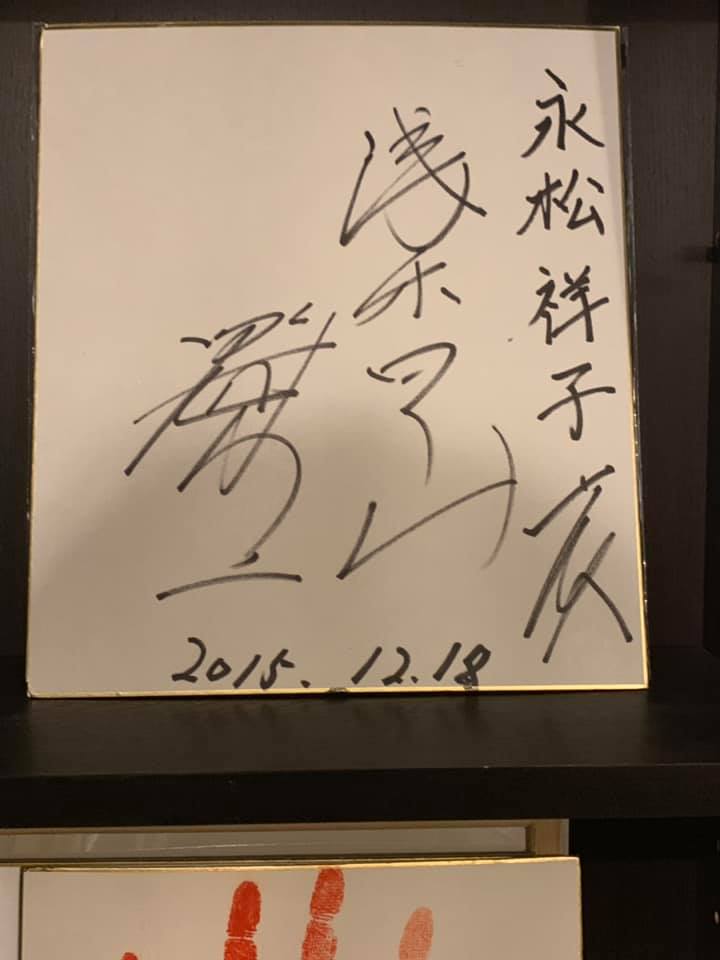 永松祥子
浅香山
2015.12.18